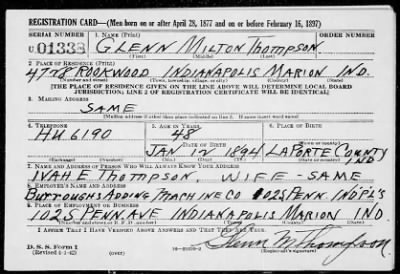 REGISTRATION CARD—(Men born on or after April 28, 1877 and on or before February 16, 1897)
SERIAL NUMBER 1. NAME (Print) ORDER NUMBER
U 01338 GLENN MILTON THOMPSON
(First) (Middle) (Last)
2. PLACE OF RESIDENCE (Print)
4778 ROOKWOOD INDIANAPOLIS MARION IND.
(Number and street) (Town, township, village, or city) (County) (State)
[THE PLACE OF RESIDENCE GIVEN ON THE LINE ABOVE WILL DETERMINE LOCAL BOARD
JURISDICTION; LINE 2 OF REGISTRATION CERTIFICATE WILL BE IDENTICAL]
3. MAILING ADDRESS
SAME
[Mailing address if other than place indicated on line 2. If same insert word same]
4. TELEPHONE 5. AGE IN YEARS 6. PLACE OF BIRTH
HU 6190 48
DATE OF BIRTH LAPORTE COUNTY
JAN 12 1894 IND
(Exchange) (Number) (Mo.) (Day) (Yr.) (State or country)
7. NAME AND ADDRESS OF PERSON WHO WILL ALWAYS KNOW YOUR ADDRESS
IVAH E THOMPSON. WIFE - SAME
8. EMPLOYER'S NAME AND ADDRESS
BURROUGHS ADDING MACHINE CO 1025 PENN. IND'PL'S
9. PLACE OF EMPLOYMENT OR BUSINESS
1025 PENN. AVE INDIANAPOLIS MARION IND.
(Number and street or R. F. D. number) (Town) (County) (State)
I AFFIRM THAT I HAVE VERIFIED ABOVE ANSWERS AND THAT THEY ARE TRUE.
Glenn M Thompson
D. S. S. Form 1
(Revised 4-1-42) (over) (Registrant's signature)